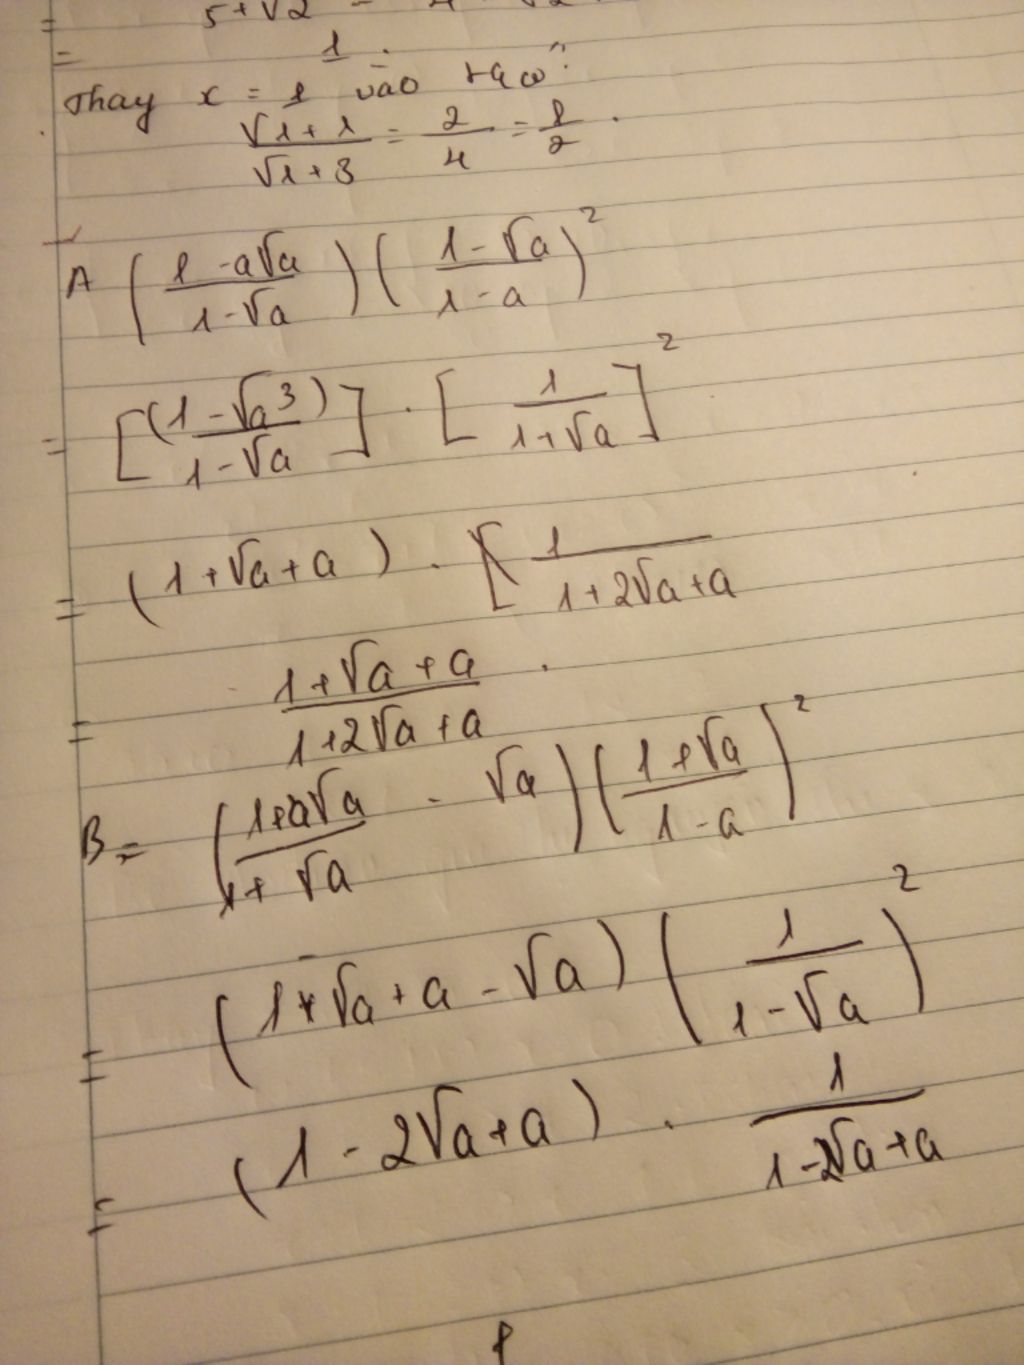 5+√2 - 4 - √2
= 1.
Thay x = 1 vào ta có:
(√1+1)/(√1+3) = 2/4 = 1/2.
A ((1-a√a)/(1-√a)) ((1-√a)/(1-a))²
= [(1-√a³)/(1-√a)] . [1/(1+√a)]²
= (1+√a+a) . [1/(1+2√a+a)
= (1+√a+a)/(1+2√a+a).
B = ((1+a√a)/(1+√a) - √a) ((1+√a)/(1-a))²
= (1-√a+a-√a) (1/(1-√a))²
= (1-2√a+a) . 1/(1-2√a+a)
1